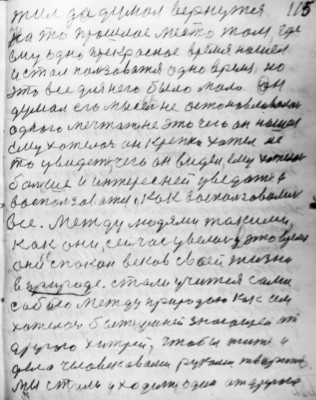 жил да думал вернутся 115
на то прошлое место там, где
ему одно прекрасное время нашел
и стал ползоватся одно время, но
это все для него было мало. Он
думал его мысел не остоновловалса
одного мечтание это чего он нашел
ему хотелося он крепко хотел не
то увидет чего он видел, ему хотелос
больше и интересней уведат и
воспользоватся, как воспользовались
все. Между людями такими,
как они, сейчас увелос в это время
они спокон веков своей жизни
в природе. стали учится сами
собою между природаю как им
хотелося быт умней знающей от
другого хитрей, чтобы жит и
дела человековами руками тварит
мы стали уходит одно от другога